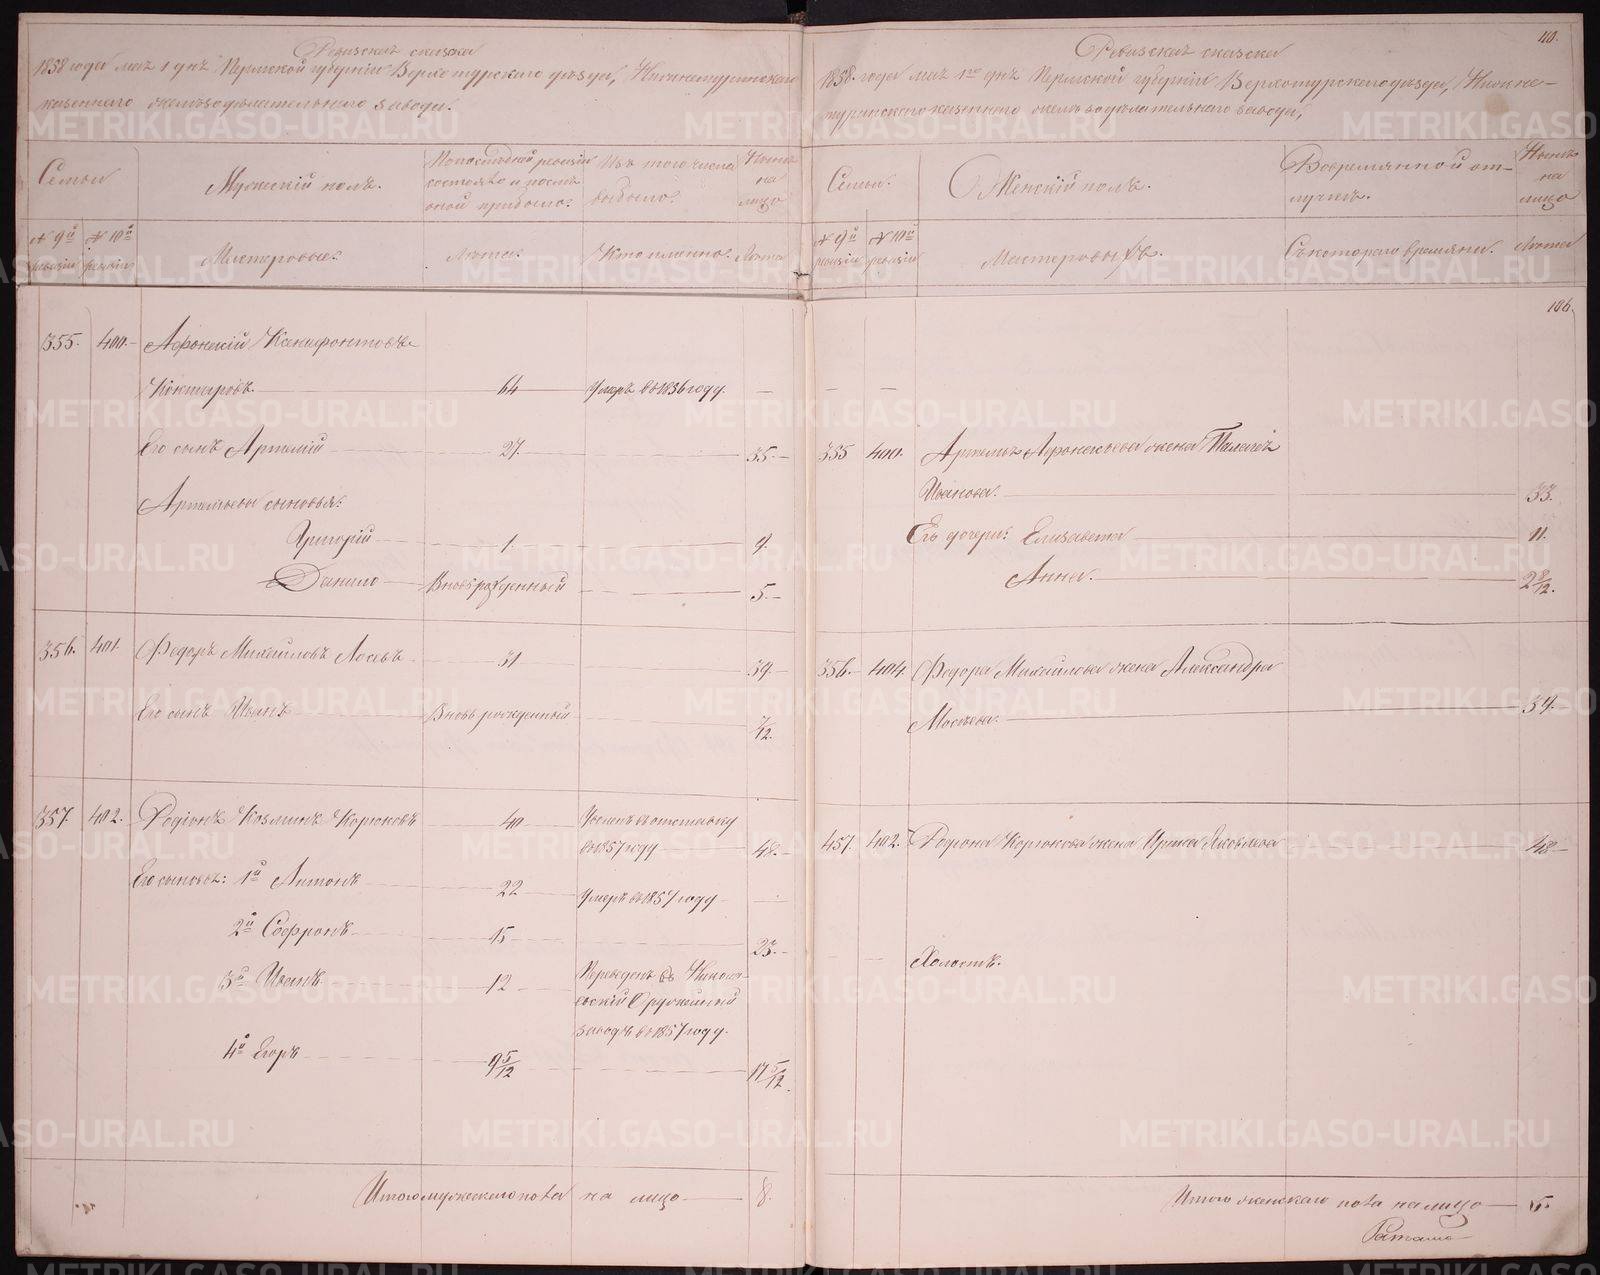 Ревизская сказка
1858 года мая 1 дня Пермской губернiи Верхотурского уѣзда, Нижнетуринскаго
казеннаго желѣзодѣлательнаго завода.
Семьи
Мужескiй полъ.
По послѣдней ревизiи
состояло и послѣ
оной прибыло.
Изъ того числа
выбыло.
Нынѣ
на
лицо
№ 9й
ревизiи
№ 10й
ревизiи
Мастеровые.
Лѣта.
Кто именно.
Лѣта
355. 400. Афонасiй Ксенофонтовъ
64 Умеръ въ 1856 году. —
Его сынъ Артемiй 27. 35.
Артемьевы сыновья:
Григорiй 1. 9.
Данило Вновь рожденный 5.
356. 401. Федоръ Михайловъ Лосевъ 31 39.
Его сынъ Иванъ Вновь рожденный 7/12.
357. 402. Родiонъ Козминъ Корюковъ 40 Уволенъ въ отставку
въ 1857 году 48.
Его сыновья: 1й Антонъ 22 Умеръ въ 1857 году —
2й Софронъ 15 23.
3й Иванъ 12 Переведенъ въ Никола-
евскiй Оружейный
заводъ въ 1857 году.
4й Егоръ 9 5/12 17 5/12.
Итого мужескаго пола на лицо 8.
40.
Ревизская сказка
1858. года мая 1го дня Пермской губернiи Верхотурского уѣзда, Нижне-
туринскаго казеннаго желѣзодѣлательнаго завода,
Семьи.
Женскiй полъ.
Во временной от-
лучкѣ.
Нынѣ
на
лицо
№ 9й
ревизiи
№ 10й
ревизiи
Мастеровыхъ.
Съ котораго времяни.
Лѣта
186.
— —
355 400. Артемья Афонасьева жена Палагея
Иванова. 33.
Еѣ дочери: Елизавета 11.
Анна. 2 8/12.
356. 404. Федора Михайлова жена Александра
Мосѣева. 39.
457. 402. Родiона Корюкова жена Ирина Яковлева 48
— — Холостъ.
Итого женскаго пола на лицо 5.